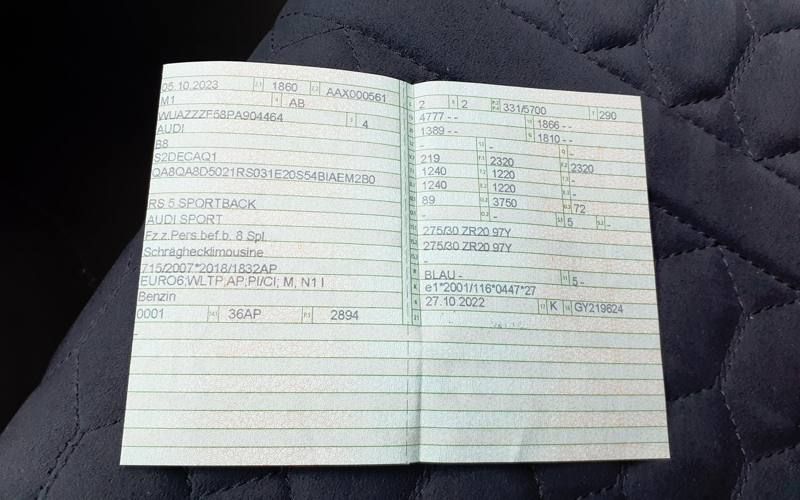 05.10.2023 2.1 1860 2.2 AAX000561
M1 AB
WUAZZZF58PA904464 3 4
AUDI
B8
S2DECAQ1
QA8QA8D5021RS031E20S54BIAEM2B0
RS 5 SPORTBACK
AUDI SPORT
Fz.z.Pers.bef.b. 8 Spl.
Schräghecklimousine
715/2007*2018/1832AP
EURO6;WLTP;AP;PI/CI; M, N1 I
Benzin
0001 14.1 36AP P.1 2894
2 9 2 P.2 P.4 331/5700 T 290
4777 - - 1866 - -
1389 - - 1810 - -
- - Q -
219 F.1 2320 F.2 2320
1240 7.2 1220 -
1240 8.2 1220 -
89 3750 72
- - 5 S.2 -
275/30 ZR20 97Y
275/30 ZR20 97Y
-
BLAU - 11 5 -
K e1*2001/116*0447*27
6 27.10.2022 17 K 16 GY219624
21